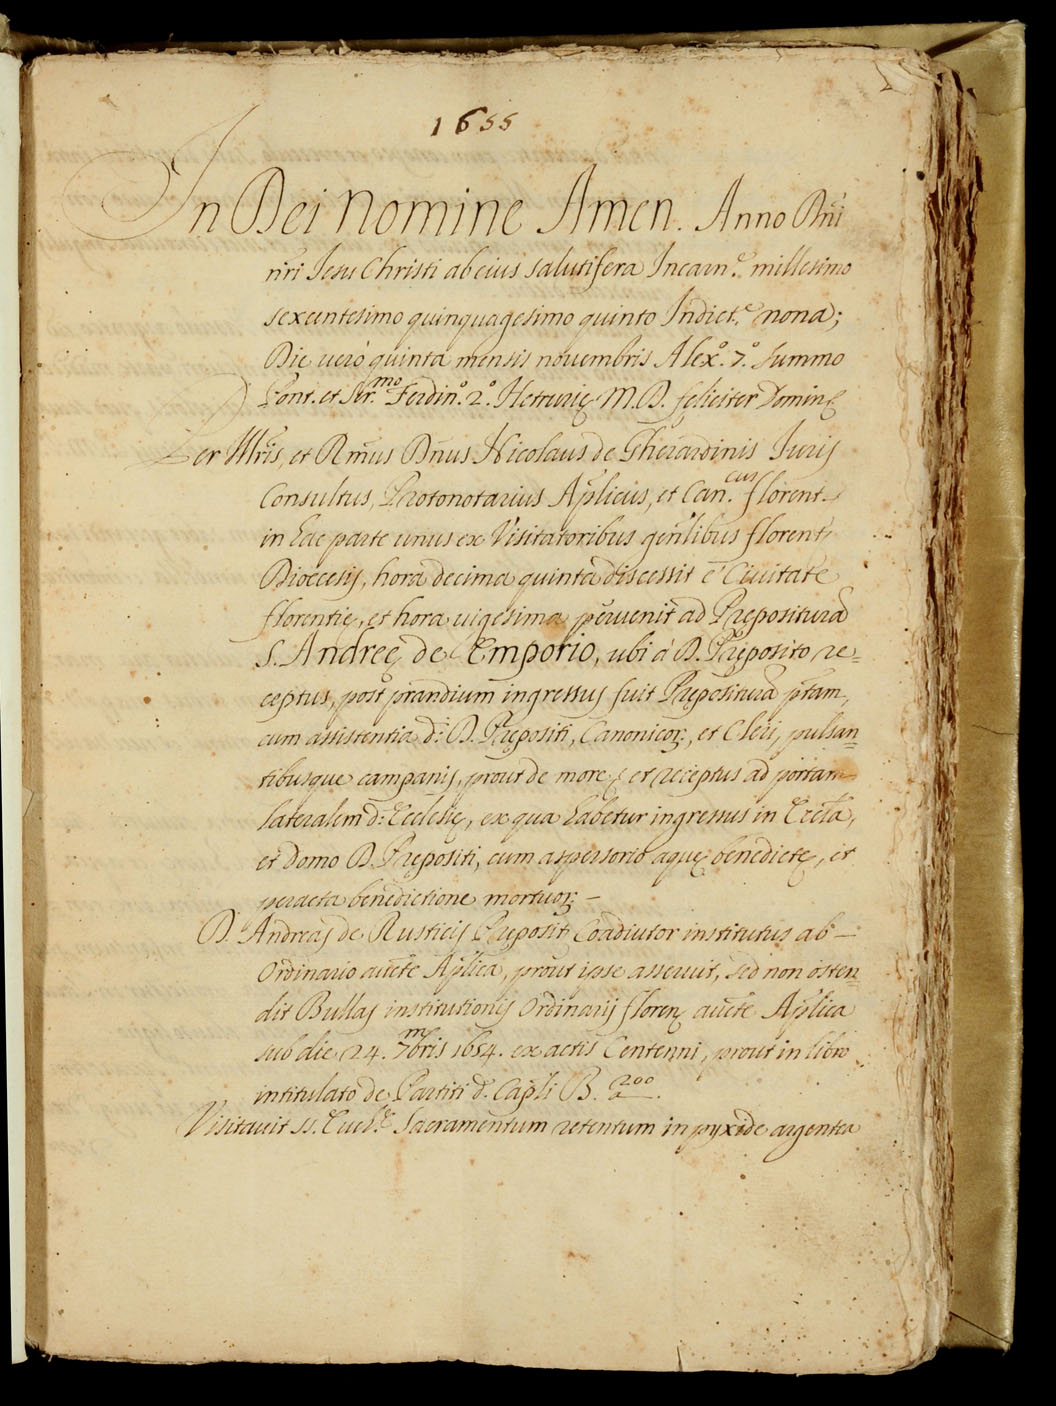 1655
In Dei Nomine Amen. Anno Dñi
nr̃i Jesu Christi ab eius salutifera Incarn.ᵉ millesimo
sexcentesimo quinquagesimo quinto Indict.ᵉ nona;
Die uero quinta mensis novembris Alex.º 7.º summo
Pont. et Ser.ᵐᵒ Ferdin.º 2.º Hetrurię M. D. feliciter Domin
Per Illr̃is, et Rm̃us Dñus Nicolaus de Gherardinis Juris
Consultus, Protonotarius Ap̃licus, et Can.ᶜᵘˢ florent.
in hac parte unus ex Visitatoribus gen̄libus florent.
Dioecesis, hora decima quinta discessit è Ciuitate
florentię, et hora uigesima peruenit ad Prępositurã
S. Andreę de Emporio, ubi à D. Pręposito re=
ceptus, post prandium ingressus fuit Prępositurã p̃tam,
cum assistentia d.ⁱ D. Prępositi, Canonicoꝝ, et Cleri, pulsan=
tibusque campanis, prout de more, et receptus ad portam
lateralem d. Ecclesię, ex qua habetur ingressus in Eccl̃a,
et Domo D. Prępositi, cum aspersorio aquę benedictę, et
peracta benedictione mortuoꝝ –
D. Andreas de Rusticis Pręposit Coadiutor institutus ab –
Ordinario auct̃e Ap̃lica, prout ipse asseruit, sed non osten=
dit Bullas institutionis Ordinarij floren auct̃e Ap̃lica
sub die 24. 7mbris 1654. ex actis Centenni, prout in libro
intitulato de Partiti d. Cap̃li B. 200
Visitauit SS. Euch.ᵉ Sacramentum retentum in pyxide argentea